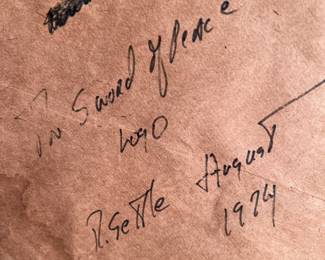 Sword of Peace
Logo
R. Settle August
1974